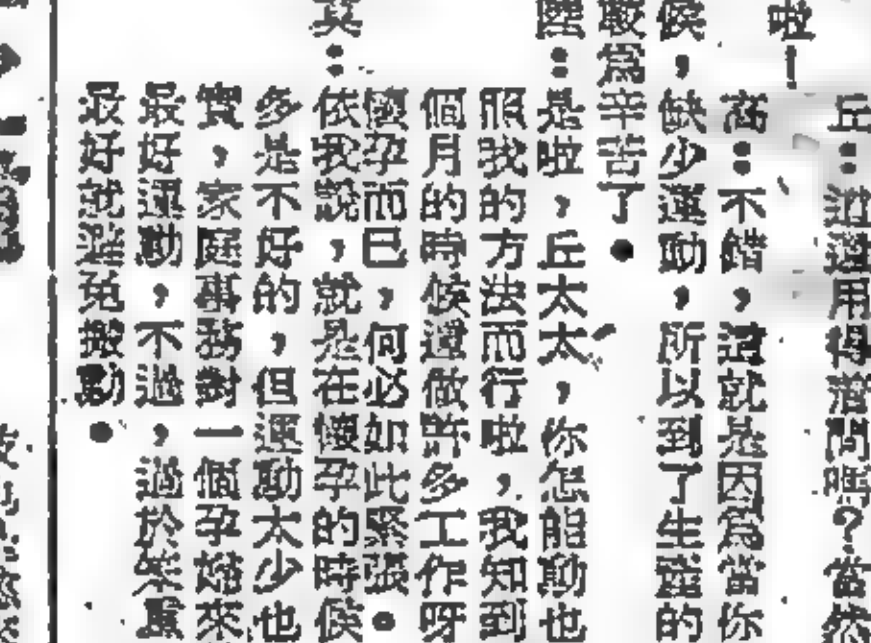 啦！
丘：這還用得着問嗎？當然
高：不錯，這就是因為當你
候，缺少運動，所以到了生產的
最為辛苦了。
陸：是啦，丘太太，你怎能動也
服我的方法而行啦，我知到
個月的時候還做許多工作呀
懷孕而已，何必如此緊張。
莫：依我說，就是在懷孕的時候
多是不好的，但運動太少也
實，家庭事務對一個孕婦來
最好運動，不過，過於笨重
最好就避免搬動。